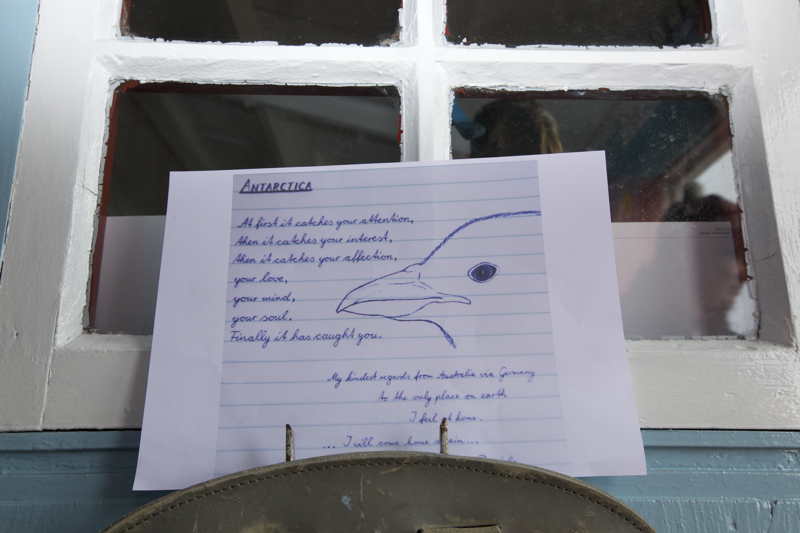 ANTARCTICA
At first it catches your attention,
then it catches your interest,
then it catches your affection,
your love,
your mind,
your soul.
Finally it has caught you.
My kindest regards from Australia via Germany
to the only place on earth
I feel at home.
... I will come home again...